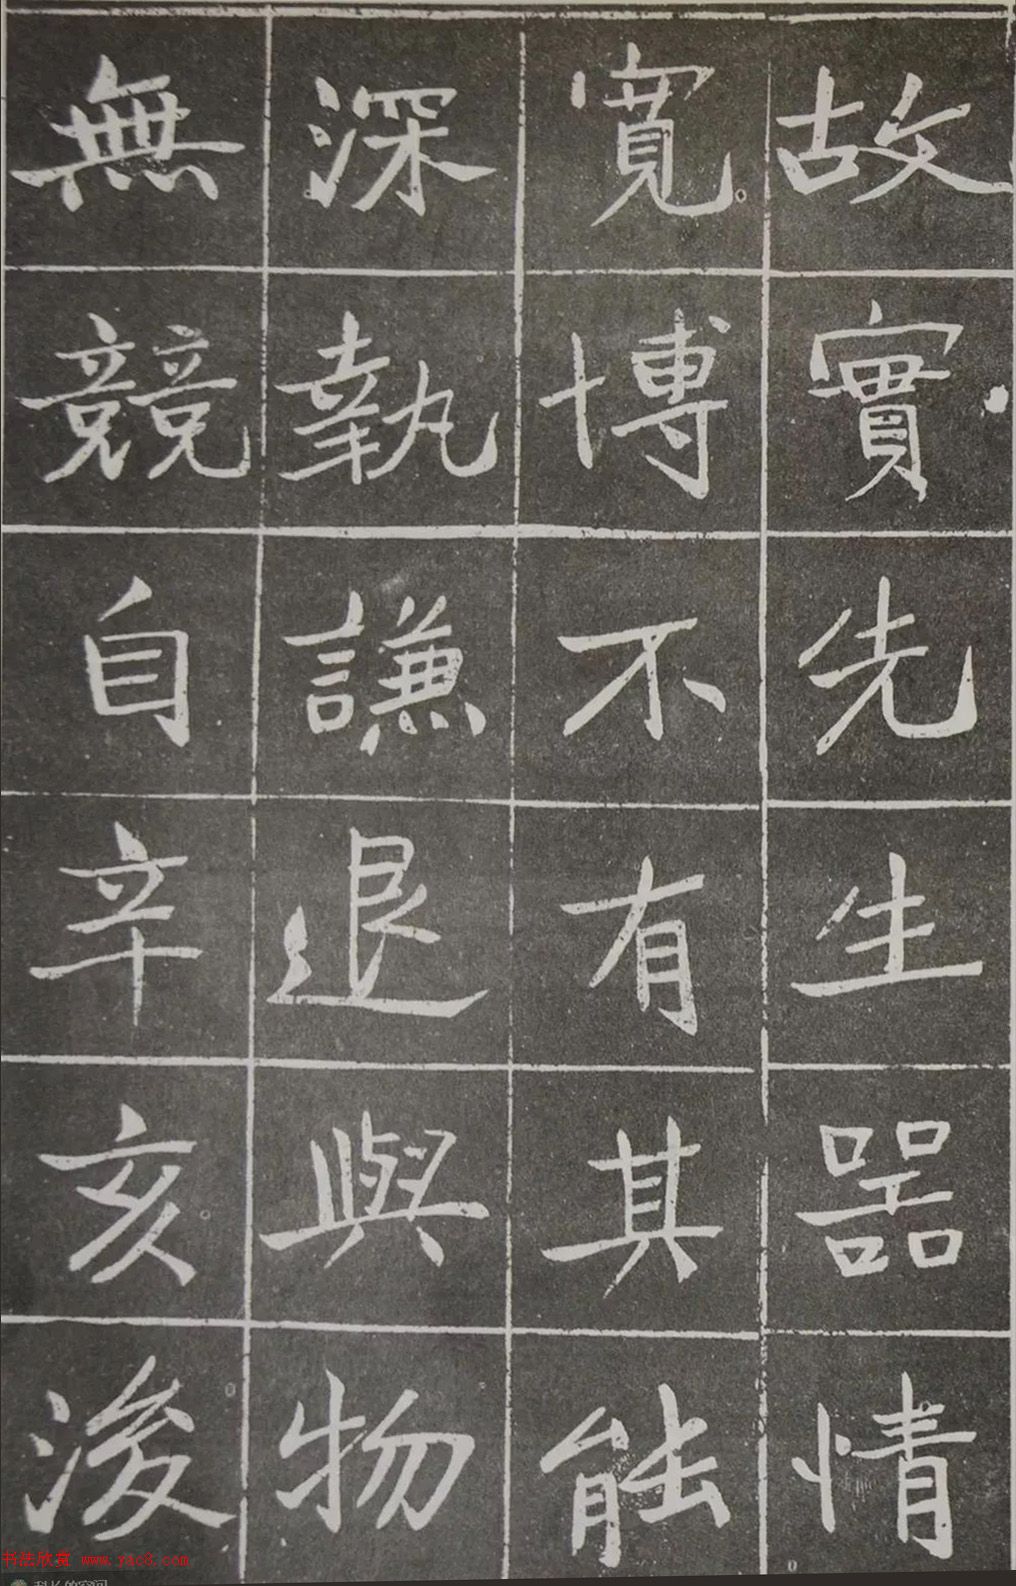 故實先生器情
寬博不有其能
深執謙退與物
無競自辛亥浚
书法欣赏 www.yac8.com